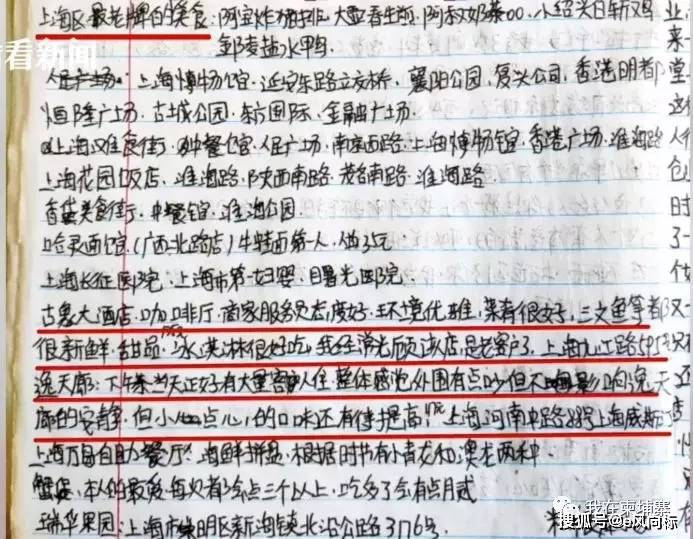 看看新闻
上海区最老牌的美食:阿宝炸猪排.大壶春生煎.阿叔奶茶.小绍兴白斩鸡
盐水鸭
人民广场.上海博物馆.延安东路立交桥.襄阳公园.复兴公园.香港明都
恒隆广场.古城公园.东方国际.金融广场.
上海美食街.中餐馆.人民广场.南京西路.上海博物馆.香港广场.淮海路
上海花园饭店.淮海路.陕西南路.茂名南路.淮海路.
美食街.中餐馆.淮海公园.
哈灵面馆.(广西北路店)牛蛙面第一人.
上海长征医院.上海市第一妇婴.曙光医院.
古象大酒店.咖啡厅.商家服务员态度好.环境优雅.菜肴很好.三文鱼等都
很新鲜.甜品.冰淇淋很好吃.我经常光顾该店.是老客户了.上海九江路595号
逸天廊:下午茶当天正好有大量客人住.整体感觉外围有点吵但不影响逸天
廊的安静.但小点心的口味还有待提高.上海河南中路 上海威斯
上海万豪自助餐厅.海鲜拼盘.根据时节有小青龙和澳龙两种
蟹煲.本人的最爱.每次都会点三个以上.吃多了会有点月贰
瑞华果园:上海市崇明区新海镇北沿公路3176号.
我在柬埔寨
搜狐号@